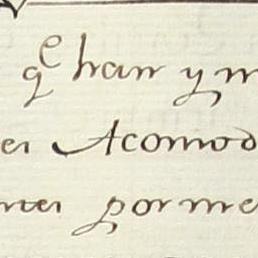 q^e han y m
es Acomod
ntes por me